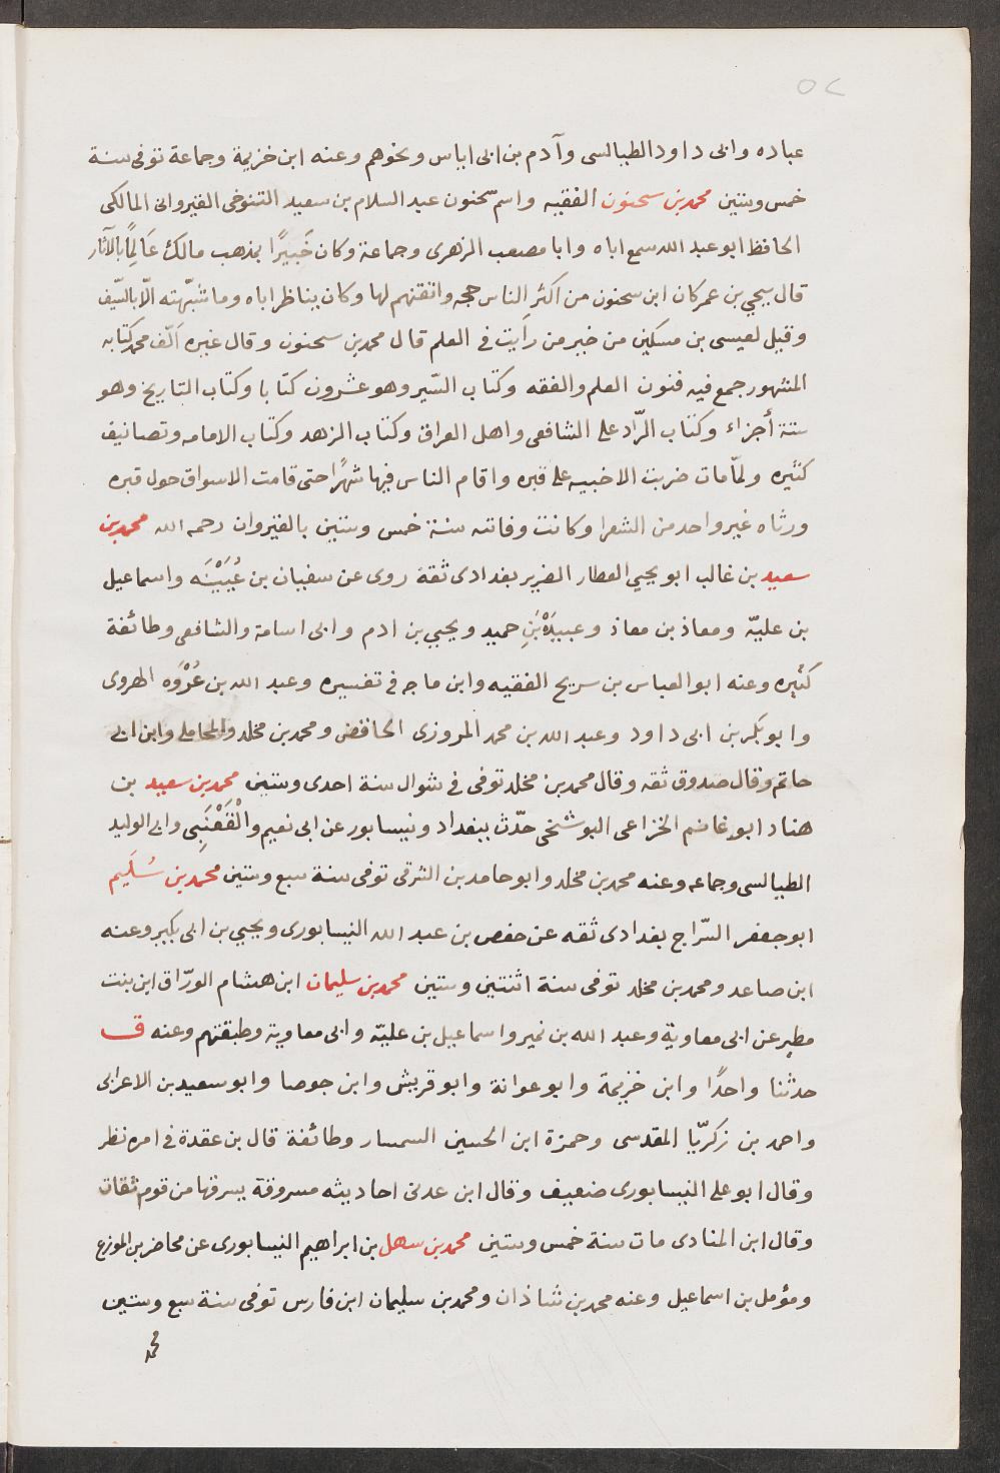 ٥٢
عباده وابى داود الطيالسى وآدم بن ابى اياس ونحوهم وعنه ابن خزيمة وجماعة توفى سنة
خمس وستين محمد بن سحنون الفقيه واسم سحنون عبد السلام بن سعيد التنوخى القيروانى المالكى
الحافظ ابو عبد الله سمع اباه وابا مصعب الزهرى وجماعة وكان خَبيرًا بمذهب مالك عَالِمًا بالآثار
قال يحيي بن عمر كان ابن سحنون من اكثر الناس حجه واتقنهم لها وكان يناظر اباه وما شبّهته الّا بالسّيف
وقيل لعيسى بن مسكين من خير من رأيت فى العلم قال محمد بن سحنون وقال غيره اَلّف محمد كتابه
المشهور جمع فيه فنون العلم والفقه وكتاب السّير وهو عشرون كتابا وكتاب التاريخ وهو
ستة أجزاء وكتاب الرّاد على الشافعى واهل العراق وكتاب الزهد وكتاب الامامه وتصانيف
كثيره ولمّا مات ضربت الاخبيه على قبره واقام الناس فيها شهرًا حتى قامت الاسواق حول قبره
ورثاه غير واحد من الشعرا وكانت وفاته سنة خمس وستين بالقيروان رحمه الله محمد بن
سعيد بن غالب ابو يحيى العطار الضرير بغدادى ثقة روى عن سفيان بن عُيَيْنَه واسماعيل
بن عليّه ومعاذ بن معاذ وعبيدَة بَنِ حميد ويحيي بن ادم وابى اسامة والشافعى وطائفة
كثيره وعنه ابو العباس بن سريج الفقيه وابن ماجه فى تفسيره وعبد الله بن عُرْوَه الهروى
وابو بَكر بن ابى داود وعبد الله بن محمد المروزى الحافض ومحمد بن مخلد والمحاملى وابن ابى
حاتم وقال صدوق ثقه وقال محمد بن مخلد توفى فى شوال سنة احدى وستين محمد بن سعيد بن
هناد ابو غانم الخزاعى البوشنخى حدّث ببغداد ونيسابور عن ابى نعيم والْقَعْنَبِى وابى الوليد
الطيالسى وجماعه وعنه محمد بن مخلد وابو حامد بن الشرقى توفى سنة سبع وستين محمد بن سُلَيم
ابو جعفر السّراج بغدادى ثقه عن حفص بن عبد الله النيسابورى ويحيي بن ابى بكير وعنه
ابن صاعد ومحمد بن مخلد توفى سنة اثنتين وستين محمد بن سليمان ابن هشام الورّاق ابن بنت
مطير عن ابى معاوية وعبد الله بن نمير واسماعيل بن عليّه وابى معاويه وطبقتهم وعنه ق
حدثنا واحدًا وابن خزيمة وابو عوانة وابو قريش وابن جوصا وابو سعيد بن الاعرابى
واحمد بن زكريّا المقدسى وحمزة ابن الحسين السمسار وطائفة قال بن عقدة فى امره نظر
وقال ابو على النيسابورى ضعيف وقال ابن عدى احاديثه مسروقة يسرقها من قوم ثقات
وقال ابن المنادى مات سنة خمس وستين محمد بن سهل بن ابراهيم النيسابورى عن محاضر بن المورع
ومؤمل بن اسماعيل وعنه محمد بن شاذان ومحمد بن سليمان ابن فارس توفى سنة سبع وستين
محمد